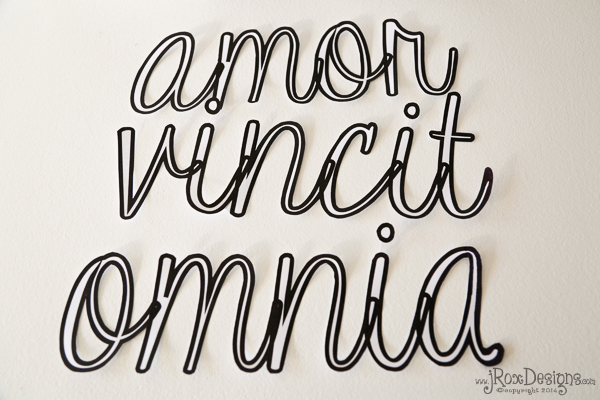 amor
vincit
omnia
www.jRoxDesigns.com
©copyright 2014